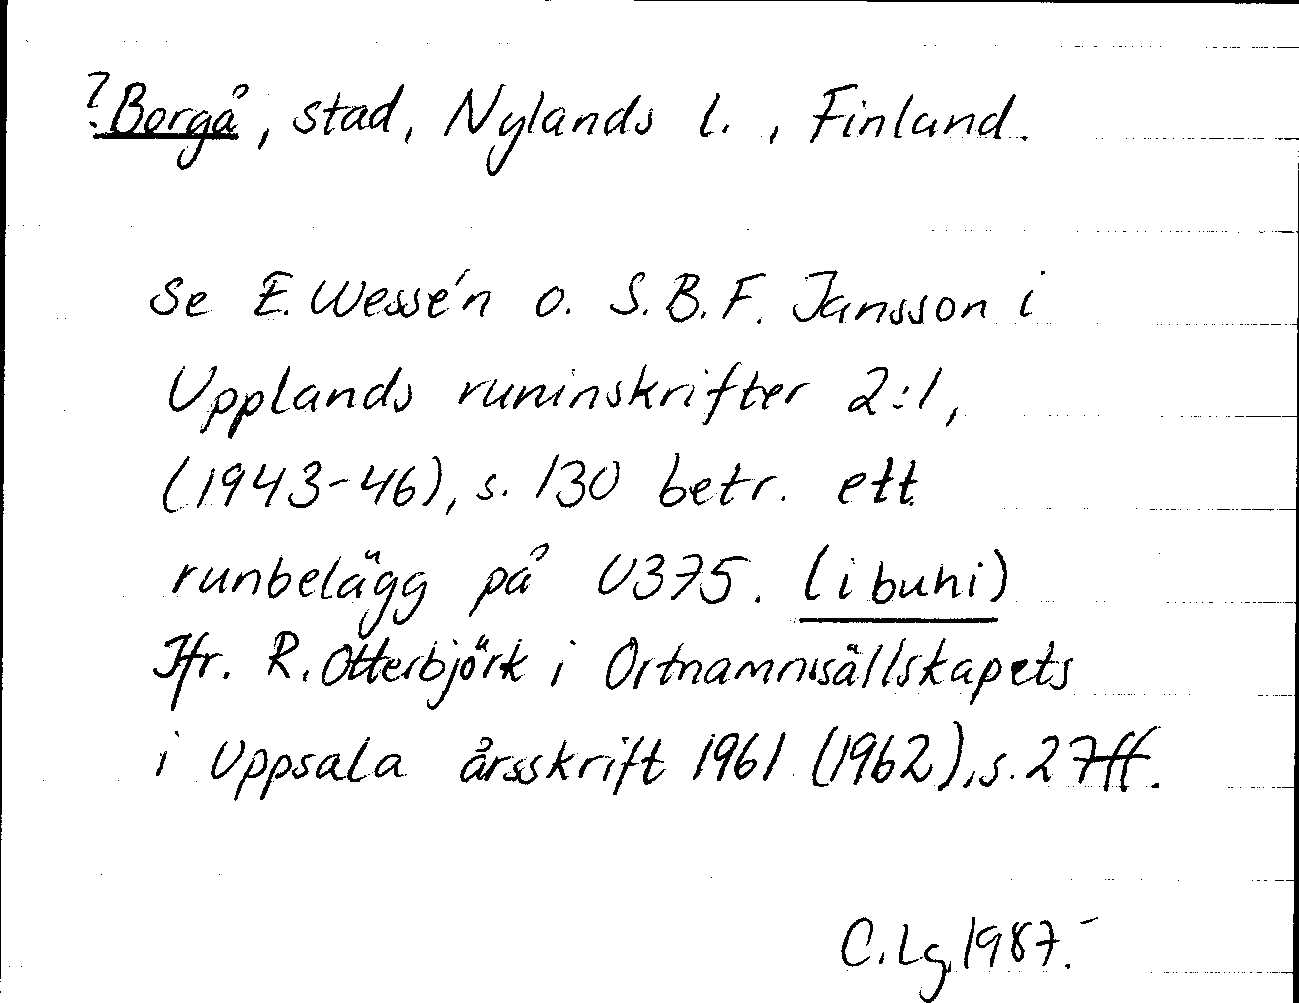 ? Borgå, stad, Nylands l., Finland.
Se E. Wessén o. S.B.F. Jansson i
Upplands runinskrifter 2:1,
(1943-46), s. 130 betr. ett
runbelägg på U375. (i buhi)
Jfr. R. Otterbjörk i Ortnamnssällskapets
i Uppsala årsskrift 1961 (1962), s. 27ff.
C. Lg, 1987.-